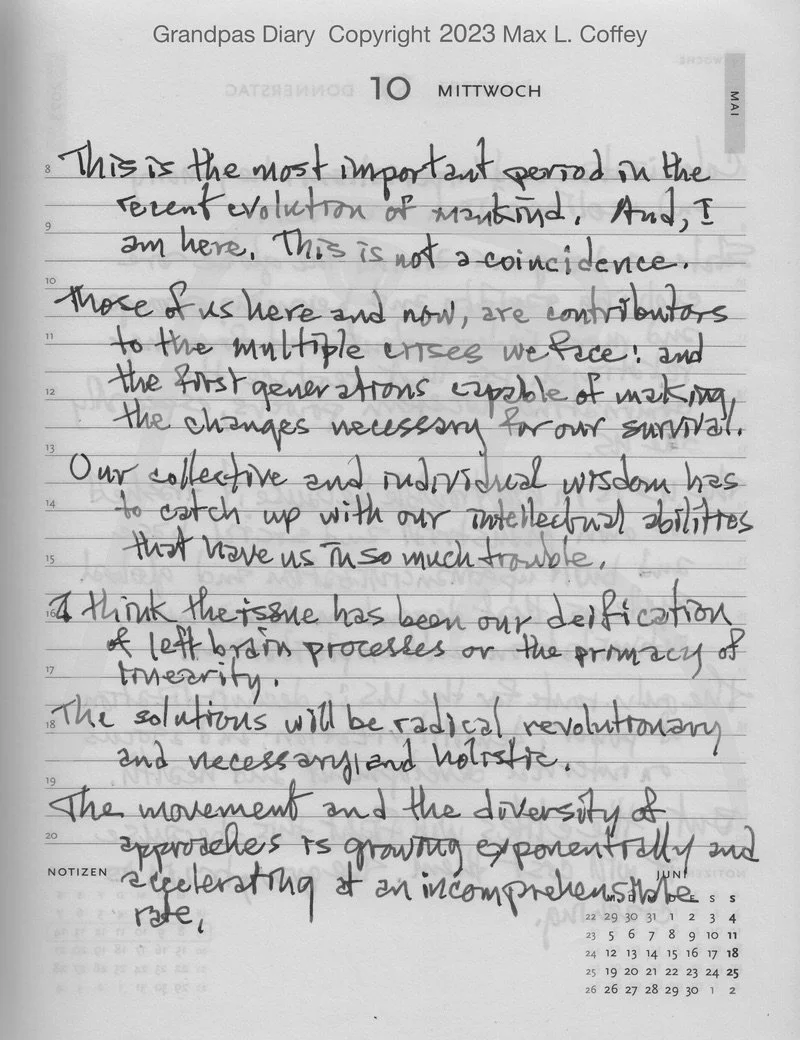 Grandpas Diary Copyright 2023 Max L. Coffey
10 MITTWOCH
MAI
8 This is the most important period in the
recent evolution of mankind. And, I
9
am here. This is not a coincidence.
10
Those of us here and now, are contributors
11
to the multiple crises we face: and
12 the first generations capable of making,
the changes necessary for our survival.
13
Our collective and individual wisdom has
14
to catch up with our intellectual abilities
15 that have us in so much trouble.
16 I think the issue has been our deification
of left brain processes or the primacy of
17 linearity.
18 The solutions will be radical, revolutionary
and necessary, and holistic.
19
The movement and the diversity of
20
approaches is growing exponentially and
NOTIZEN
accelerating at an incomprehensible
JUNI
rate.
S S
22 29 30 31 1 2 3 4
23 5 6 7 8 9 10 11
24 12 13 14 15 16 17 18
25 19 20 21 22 23 24 25
26 26 27 28 29 30 1 2